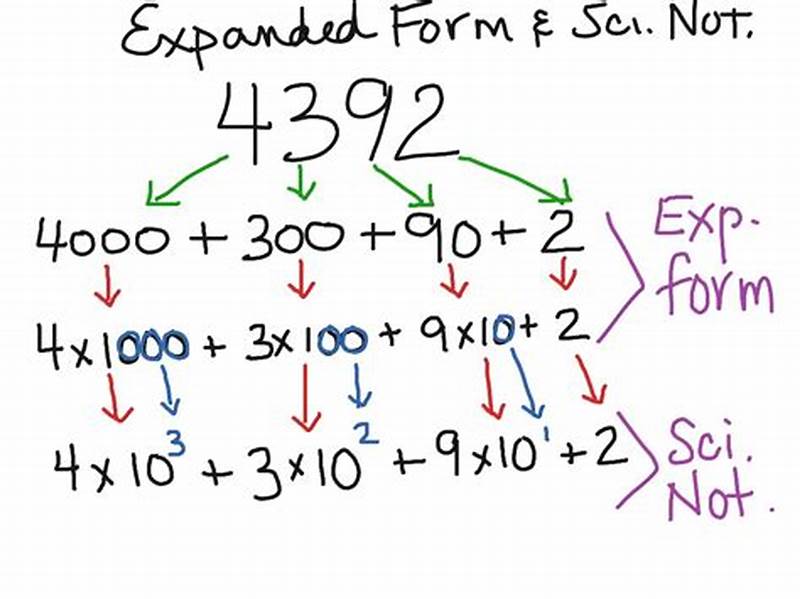 Expanded Form & Sci. Not.
4392
4000 + 300 + 90 + 2
Exp.
form
4x1000 + 3x100 + 9x10 + 2
4 x 10³ + 3x10² + 9x10¹ + 2
Sci.
Not.